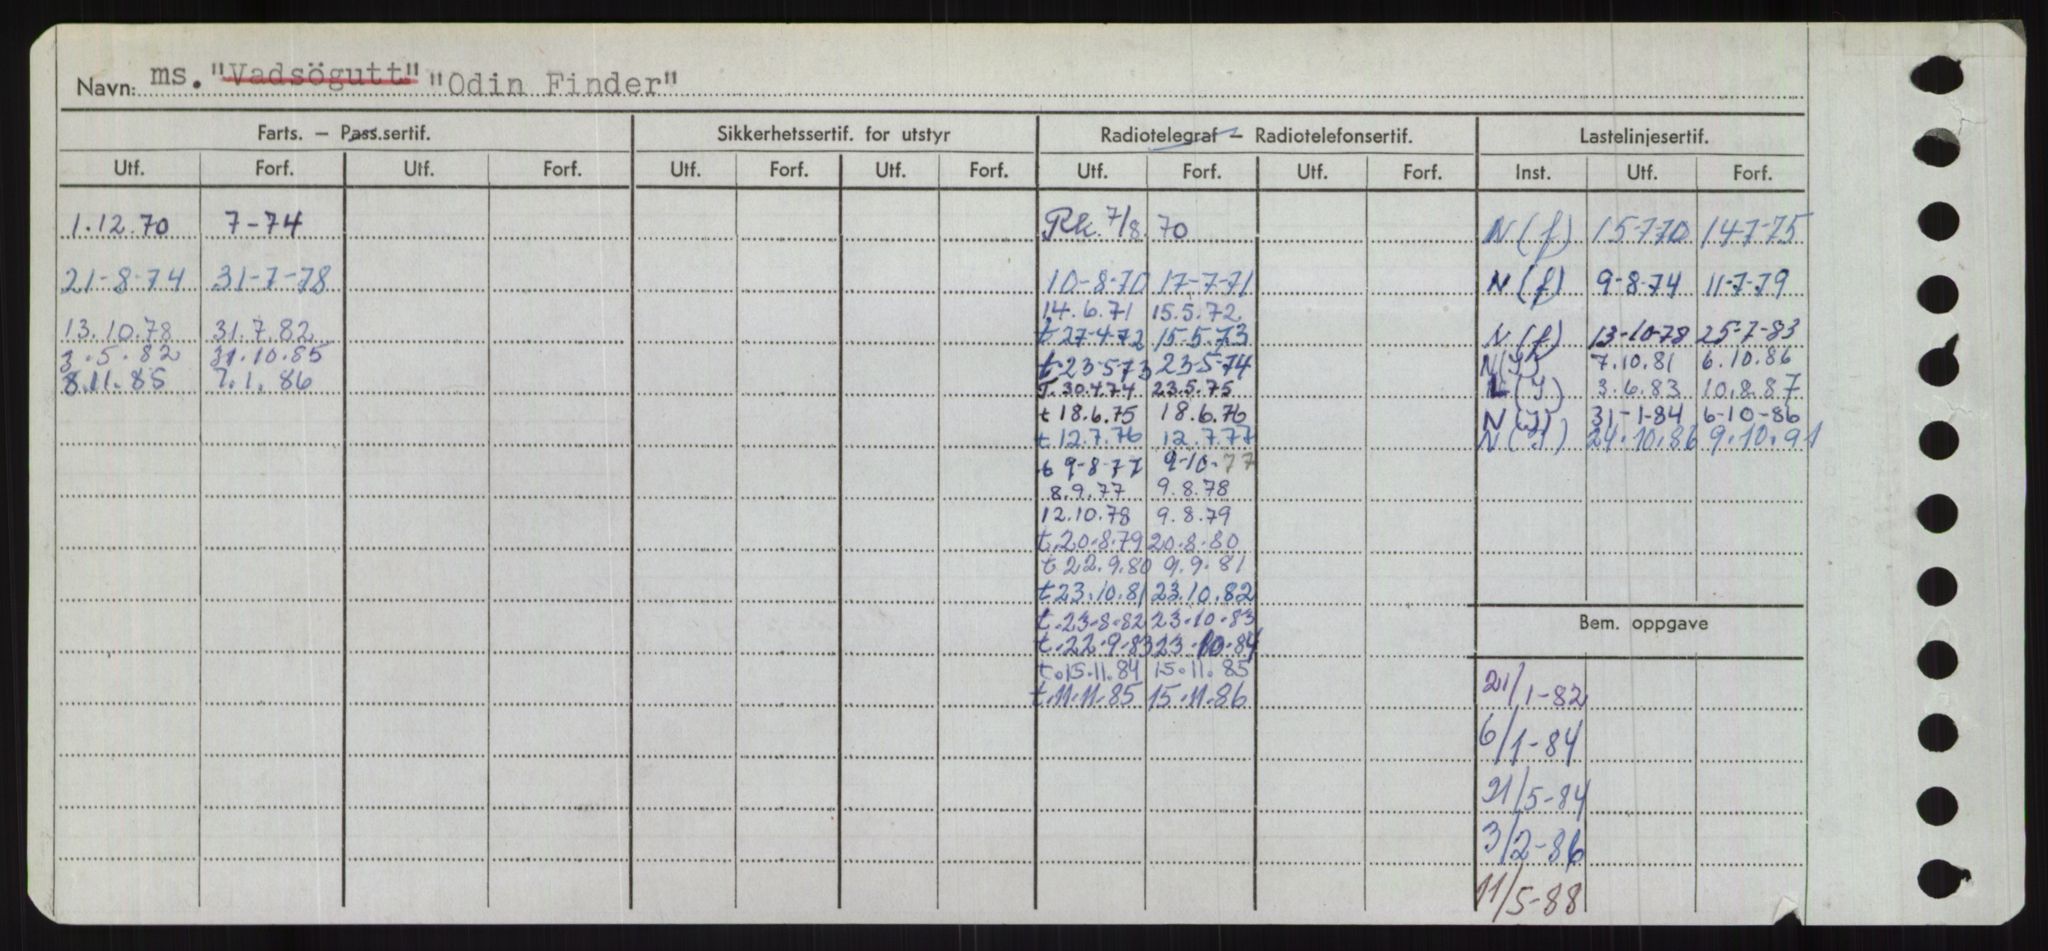 Navn: ms. "Vadsögutt" "Odin Finder"
Farts. — Pass.sertif. Sikkerhetssertif. for utstyr Radiotelegraf — Radiotelefonsertif. Lastelinjesertif.
Utf. Forf. Utf. Forf. Utf. Forf. Utf. Forf. Utf. Forf. Utf. Forf. Inst. Utf. Forf.
1.12.70 7-74 Rk. 7/8. 70 N(f) 15-7-70 14-7-75
21-8-74 31-7-78 10-8-70 17-7-71 N(f) 9-8-74 11-7-79
14.6.71 15.5.72
13.10.78 31.7.82 t 27-4-72 15-5-73 N(f) 13-10-78 25-7-83
3.5.82 31.10.85 t.23-5-73 23-5-74 7.10.81 6.10.86
8.11.85 7.1.86 T.30.4.74 23.5.75 3.6.83 10.8.87
t 18.6.75 18.6.76 31-1-84 6-10-86
t.12.7.76 12.7.77 24.10.86 9.10.91
t 9-8-77 9-10-77
8.9.77 9.8.78
12.10.78 9.8.79
t.20.8.79 20.8.80
t 22.9.80 9.9.81
t 23.10.81 23.10.82
t.23-8-82 23-10-83 Bem. oppgave
t.22.9.83 23.10.84
t.15.11.84 15.11.85 21/1-82
t.11.11.85 15.11.86
6/1-84
21/5-84
3/2-86
11/5-88